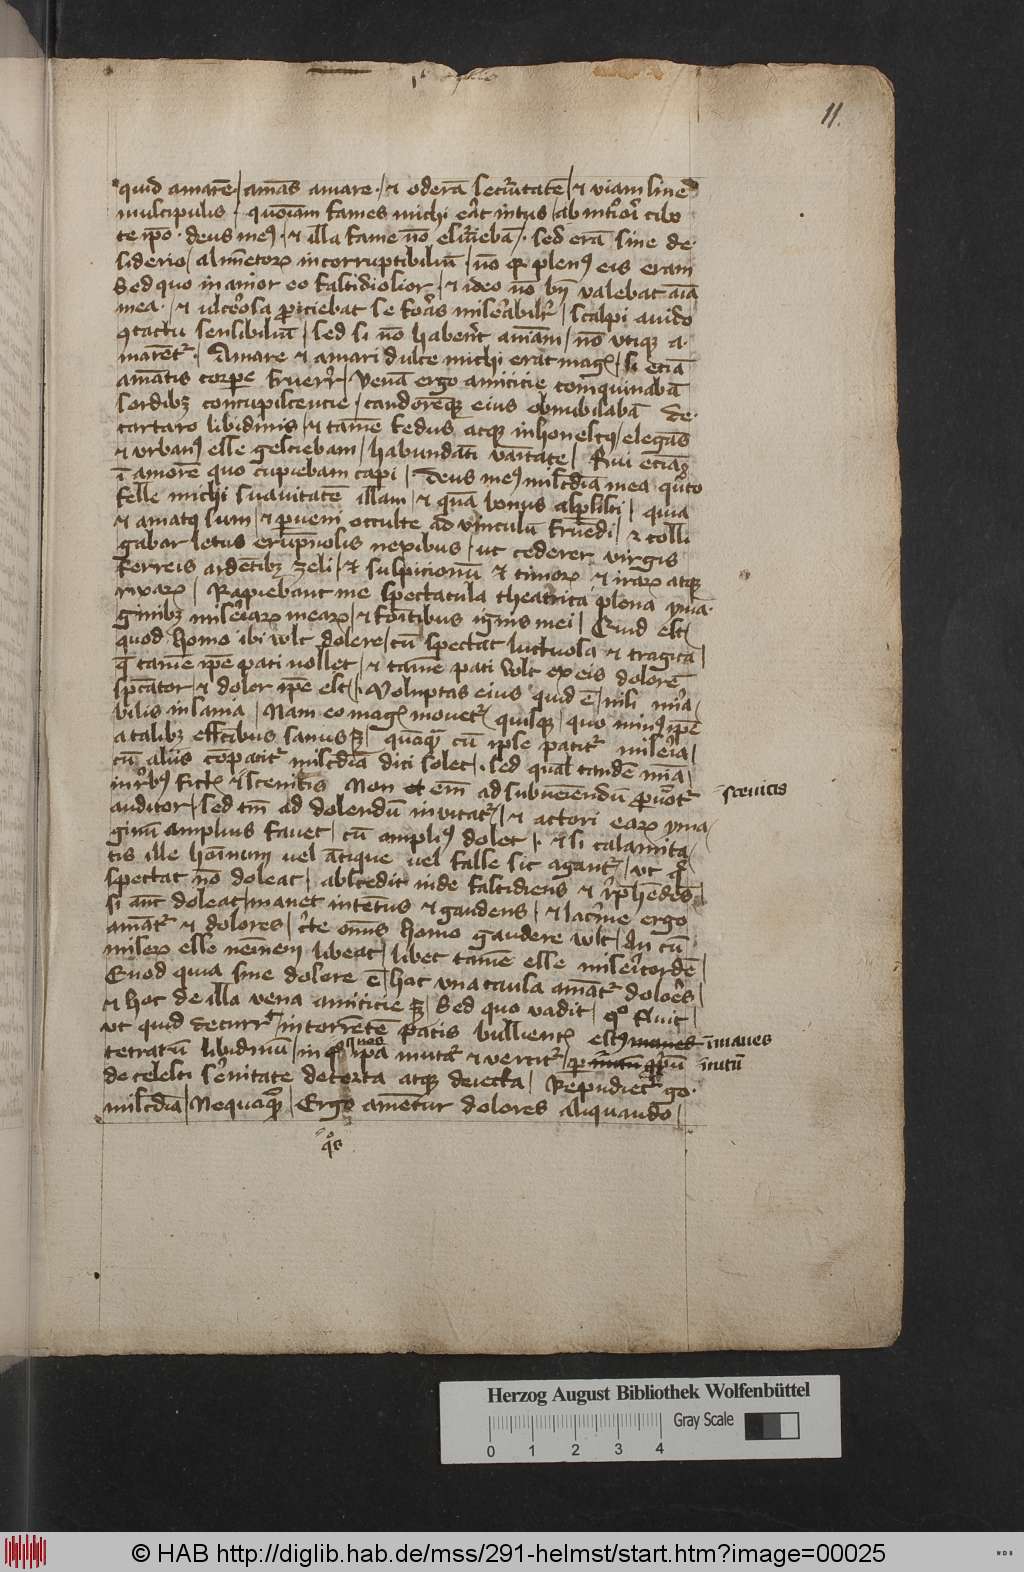 11.
quid amarē / amās amare · et oderā securitatē / et viam sine
muscipulis · quoniam fames michi erat intus / ab interiori cibo
te ipo · deus meus · et illa fame nō esuriebā · sed erā sine de-
siderio / alimentorum incorruptibiliū / nō quia plenus eis eram
Sed quo inanior eo fastidiosior / et ideo nō bn̄ valebat aīa
mea · et ulcerosa proiciebat se foras miserabiliter / scalpi auido
contactu sensibiliū / sed si nō haberēt animam / nō utique a-
marētur · Amare et amari dulce michi erat magis / si eciā
amātis corpore fruerer / Venā ergo amicicie coinquinabā
sordibus concupiscencie / candorēque eius obnubilabā de
tartaro libidinis / et tamē fedus atque inhonestus / elegās
et urbanus esse gestiebam / habundāti vanitate / Rui eciā
ī amorē quo cupiebam capi / Deus meus misericordia mea quāto
felle michi suauitatē illam / et quā bonus aspersisti / quia
et amatus sum / et perueni occulte ad vinculū fruendi / et colli
gabar letus erumpnosis nexibus / ut cederer virgis
ferreis ardētibus zeli / et suspicionū et timorum et irarum atque
rixarum / Rapiebant me spectacula theatrica plena yma-
ginibus miseriarum mearum / et fomitibus ignis mei / Quid est
quod homo ibi wlt dolere / cū spectat luctuosa et tragica /
que tamē ipē pati nollet / et tamē pati wlt ex eis dolorē
spectator / et dolor ipē est / Voluptas eius quid ē / nisi mira
bilis insania / Nam eo magis mouetur quisque / quo minus ipē
a talibus affectibus sanus est / quāquā cū ipse patitur miseria /
cū aliis cōpatitur misericordia dici solet / sed qualis tandē misericordia /
in rebus fictis et scenicis Non et enim ad subueniendū prouocatur
auditor / sed tantum ad dolendū inuitatur / et actori earum yma
ginū amplius fauet / cū amplius dolet / et si calamita
tis ille hominum uel ātique uel false sic agantur / ut qui
spectat nō doleat / abscedit inde fastidiens et reprehendens
si autem doleat / manet intentus et gaudens / et lacrime ergo
amātur et dolores / certe omnis homo gaudere wlt / An cū
miserum esse neminem libeat / libet tamē esse misericordē /
Quod quia sine dolore ē / hac una causa amātur dolores /
et hoc de illa vena amicicie est / Sed quo vadit / quo fluit
ut quid decurrit in torrētē picis bullientis estus manes īmanes
tetrarū libidinū / in quos ipa mutatur et vertitur / per nutū proprium
de celesti serenitate detorta atque deiecta / Repudietur ergo
misericordia / Nequaquam / Ergo amētur dolores aliquando /
scenicis
īmanes
nutū
Herzog August Bibliothek Wolfenbüttel
Gray Scale
0 1 2 3 4
© HAB http://diglib.hab.de/mss/291-helmst/start.htm?image=00025